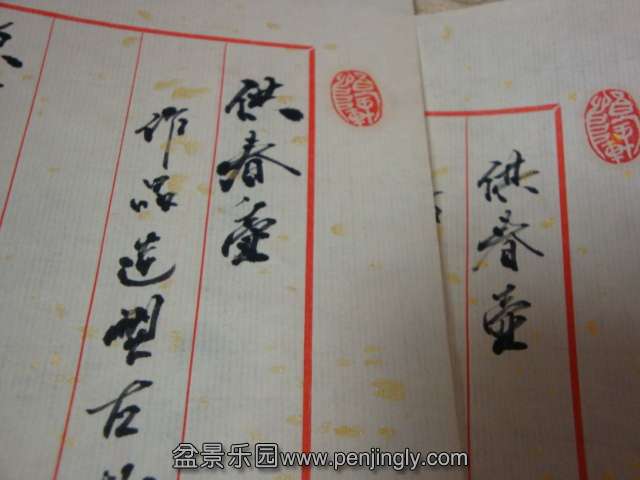 供春壶
作品造型古
供春壶
盆景乐园www.penjingly.com